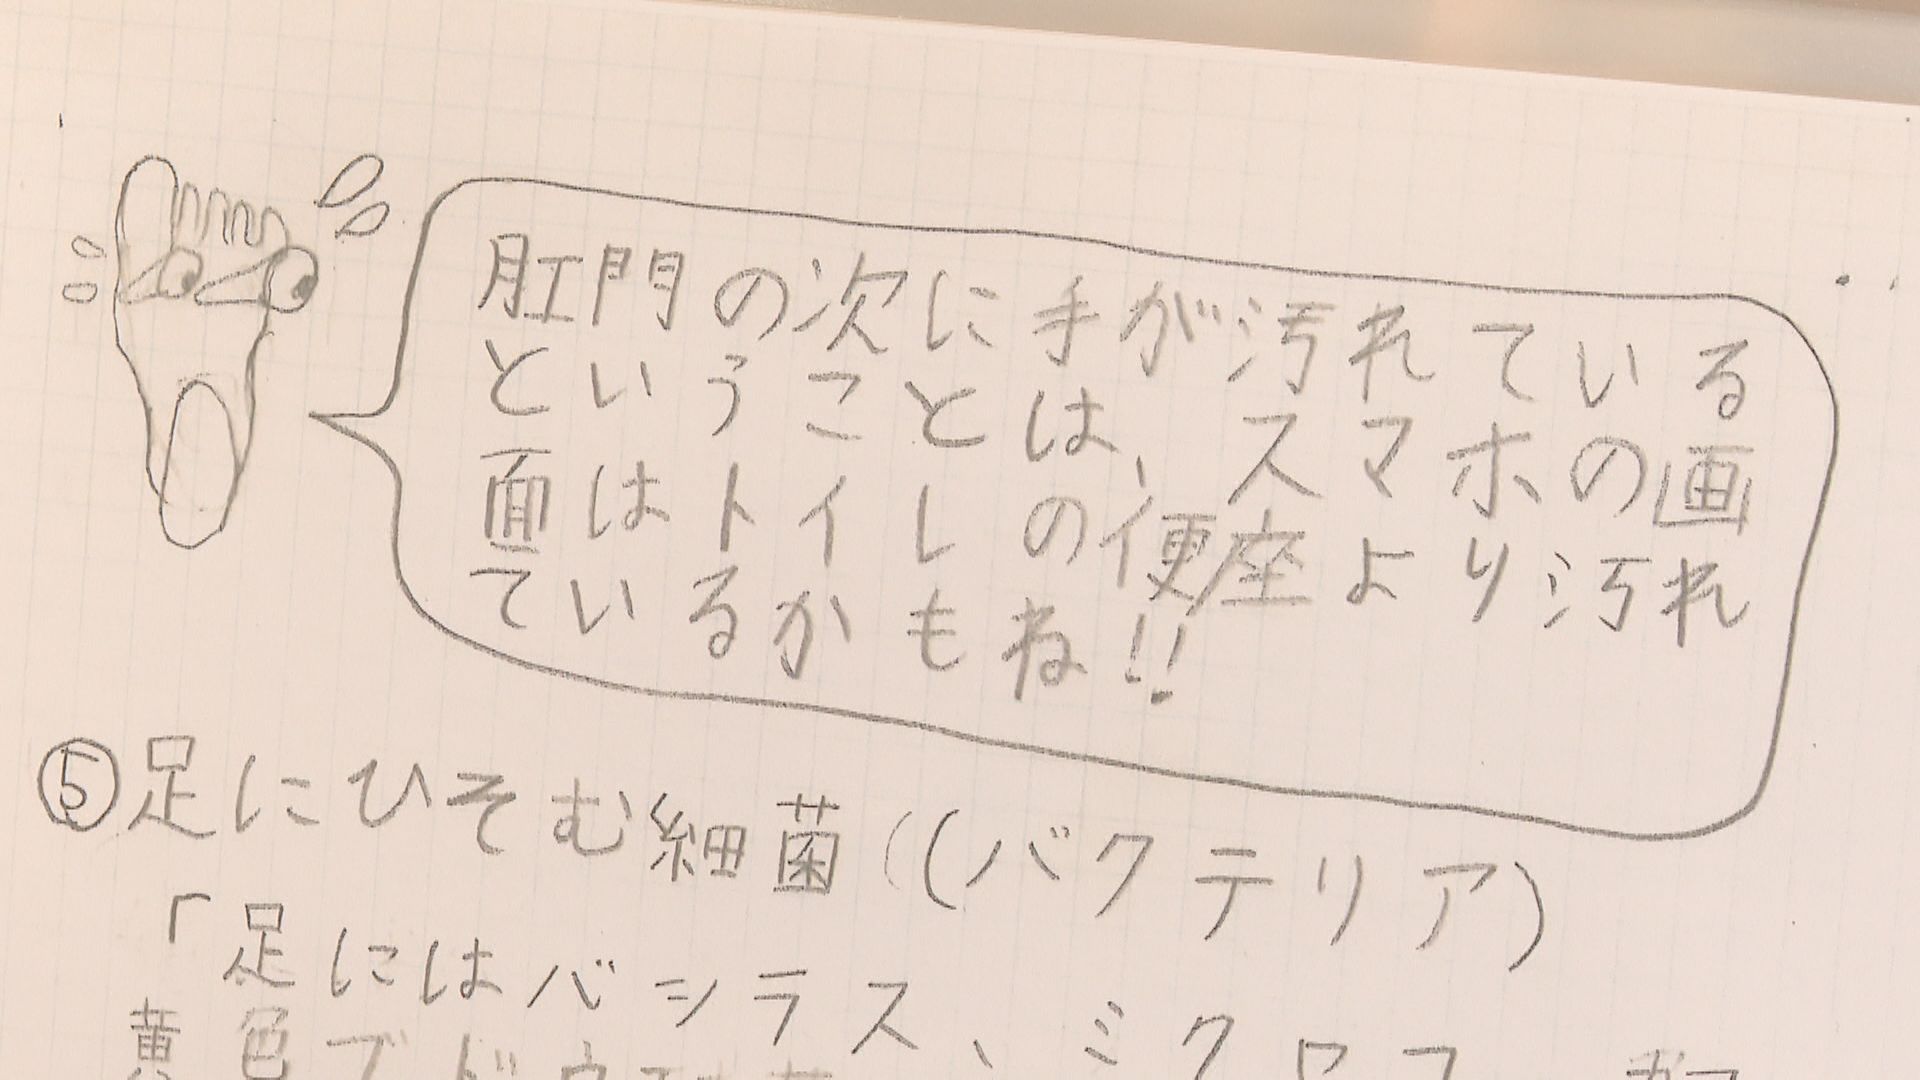 肛門の次に手が汚れている
ということは、スマホの画
面はトイレの便座より汚れ
ているかもね!!
⑤足にひそむ細菌((バクテリア)
「足にはバシラス、ミクロコ
黄色ブドウ